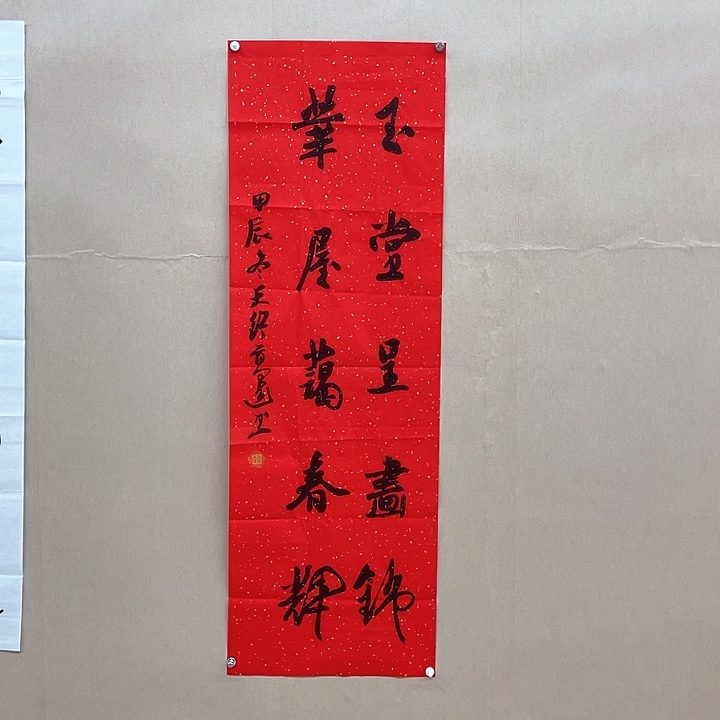 玉堂呈畫錦
華屋藹春輝
甲辰冬天